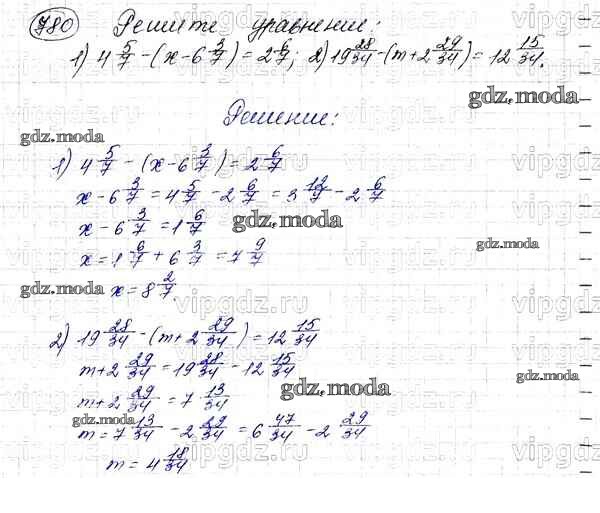 780 Решите уравнение:
1) 4 5/7 - (x - 6 3/7) = 2 6/7; 2) 19 28/34 - (m + 2 29/34) = 12 15/34.
gdz.moda
Решение:
gdz.moda
1) 4 5/7 - (x - 6 3/7) = 2 6/7
x - 6 3/7 = 4 5/7 - 2 6/7 = 3 12/7 - 2 6/7
x - 6 3/7 = 1 6/7
gdz.moda
x = 1 6/7 + 6 3/7 = 7 9/7
gdz.moda
gdz.moda
x = 8 2/7.
2) 19 28/34 - (m + 2 29/34) = 12 15/34
m + 2 29/34 = 19 28/34 - 12 15/34
gdz.moda
gdz.moda
m + 2 29/34 = 7 13/34
gdz.moda
m = 7 13/34 - 2 29/34 = 6 47/34 - 2 29/34
m = 4 18/34
vipgdz.ru